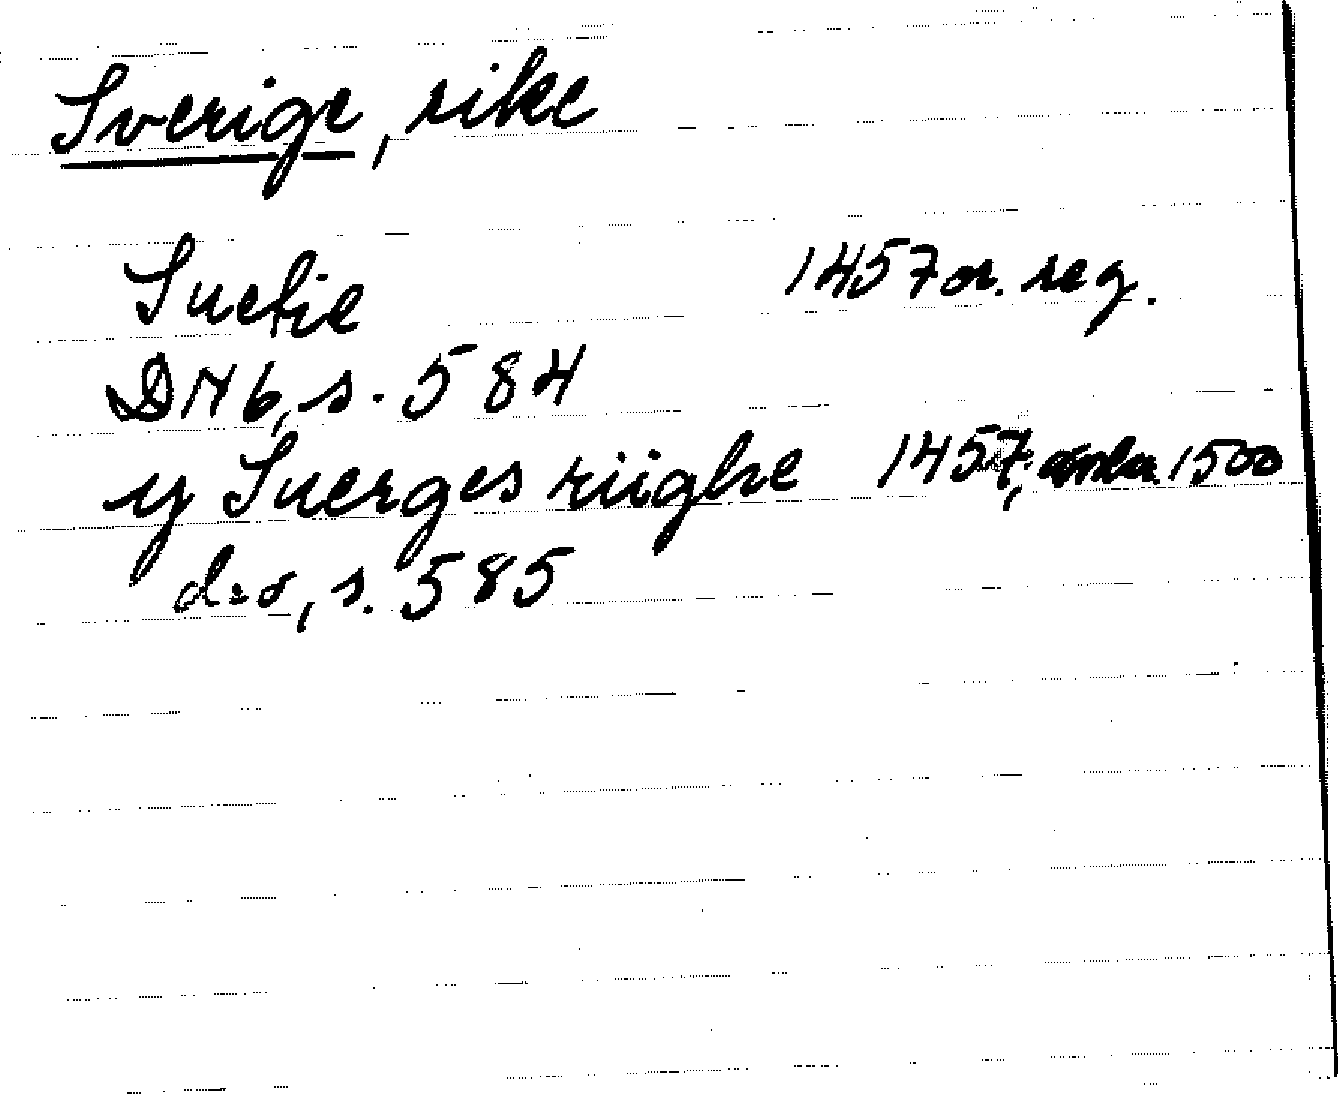 Sverige, rike
Suetie 1457 or. reg.
DN 6, s. 584
y Suerges riighe 1457, 1500
d:o, s. 585